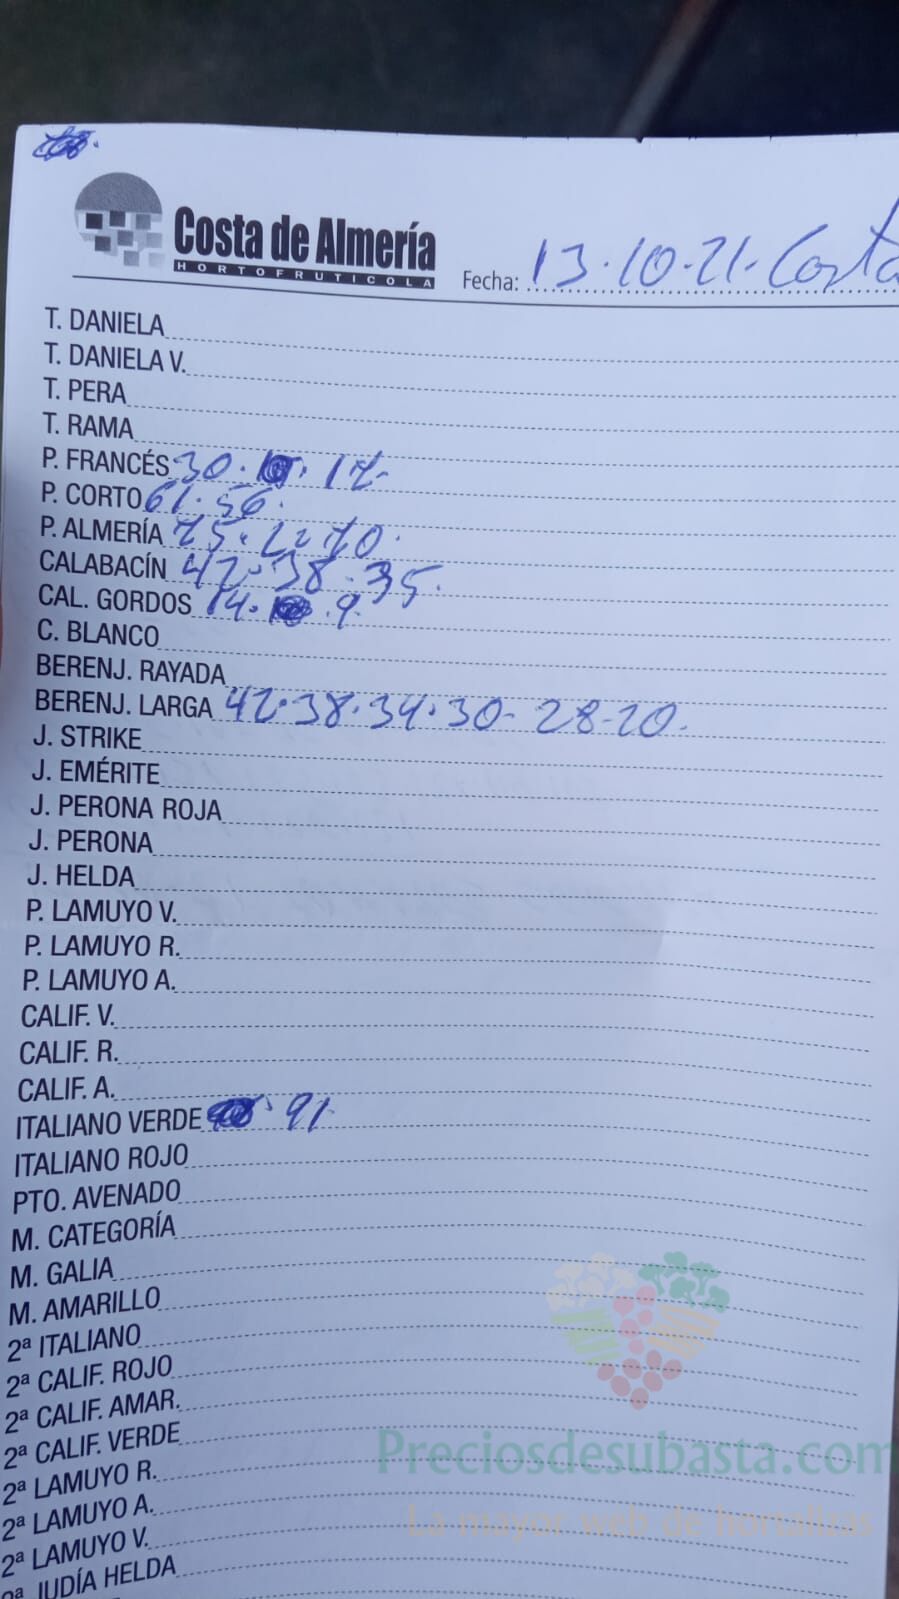 Costa de Almería
HORTOFRUTICOLA
Fecha: 13.10.21. Costa
T. DANIELA
T. DANIELA V.
T. PERA
T. RAMA
P. FRANCÉS 30. 17.
P. CORTO 61. 56.
P. ALMERÍA 70.
CALABACÍN 42. 38. 35.
CAL. GORDOS 14. 9.
C. BLANCO
BERENJ. RAYADA
BERENJ. LARGA 42. 38. 34. 30. 28. 20.
J. STRIKE
J. EMÉRITE
J. PERONA ROJA
J. PERONA
J. HELDA
P. LAMUYO V.
P. LAMUYO R.
P. LAMUYO A.
CALIF. V.
CALIF. R.
CALIF. A.
ITALIANO VERDE 91.
ITALIANO ROJO
PTO. AVENADO
M. CATEGORÍA
M. GALIA
M. AMARILLO
2ª ITALIANO
2ª CALIF. ROJO
2ª CALIF. AMAR.
2ª CALIF. VERDE
2ª LAMUYO R.
2ª LAMUYO A.
2ª LAMUYO V.
2ª JUDÍA HELDA
Preciosdesubasta.com
La mayor web de hortalizas